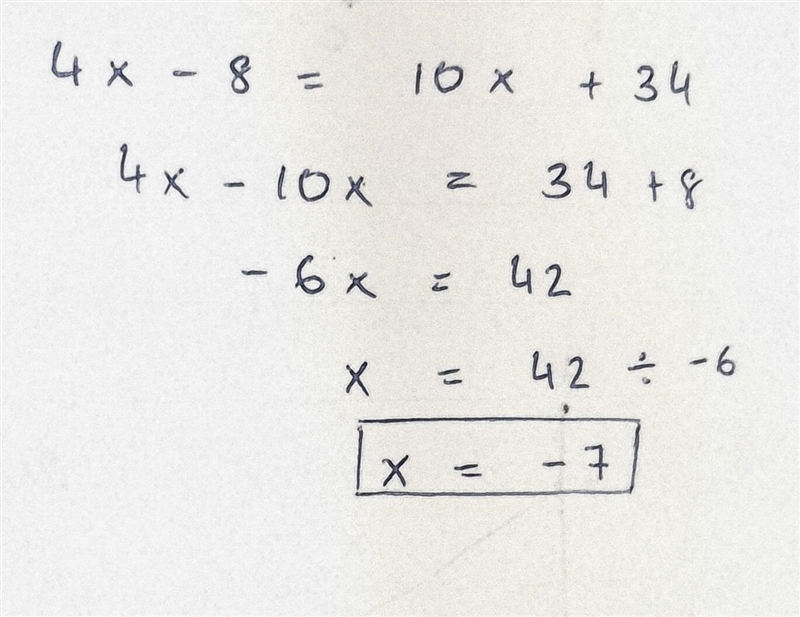 4x - 8 = 10x + 34
4x - 10x = 34 + 8
- 6x = 42
x = 42 ÷ -6
x = -7